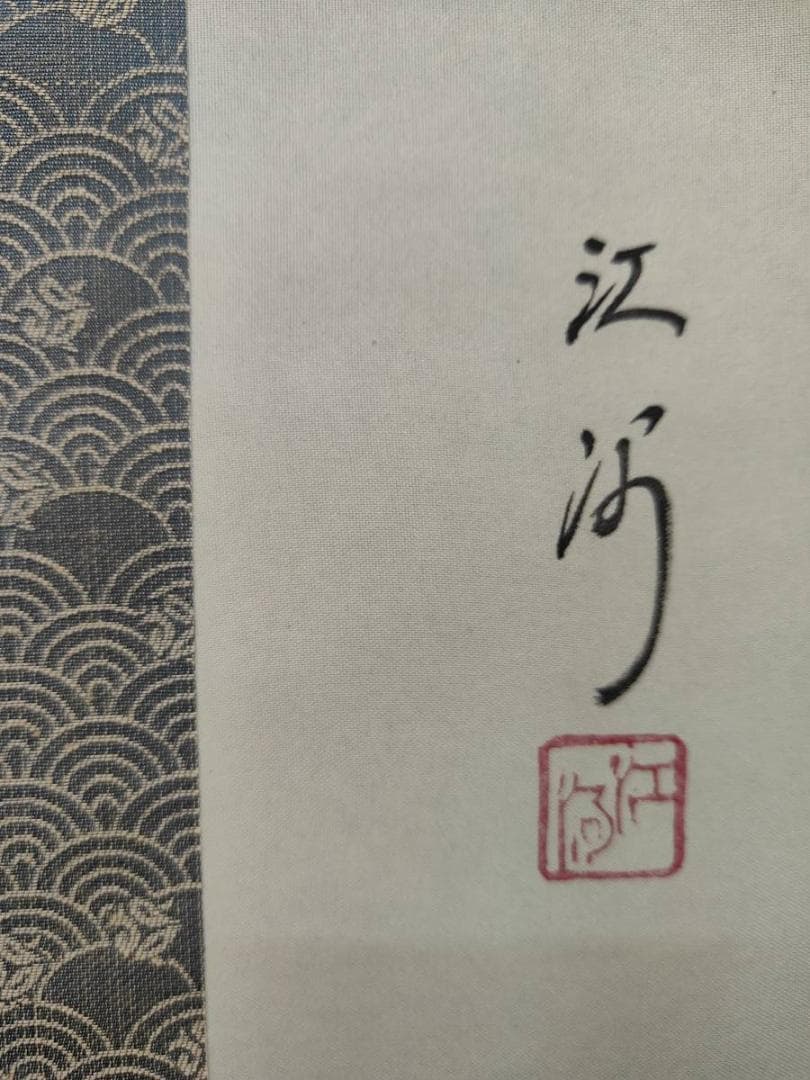 江河
江河